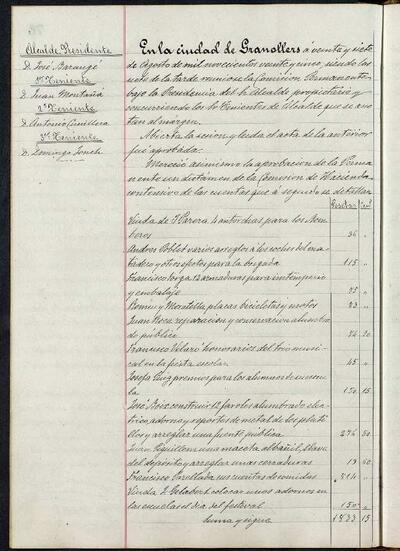 Alcalde Presidente
D. José Barangé
1er Teniente
D. Juan Montañá
2º Teniente
D. Antonio Cunillera
3er Teniente
D. Domingo Jonch
En la ciudad de Granollers á veinte y siete
de Agosto de mil novecientos veinte y cinco, siendo las
siete de la tarde reuniose la Comisión Permanente
bajo la Presidencia del Sr. Alcalde propietario y
concurriendo los Sr. Tenientes de Alcalde que se ano-
tan al margen.
Abierta la sesión y leida el acta de la anterior
fué aprobada.
Mereció asimismo la aprobación de la Perma-
nente un dictamen de la Comisión de Hacienda
contensivo de las cuentas que á seguido se detallan
Pesetas Cent
Viuda de J. Parera 4 antorchas para los Bom-
beros 36 "
Andrés Poblet varios arreglos á los coches del ma-
tadero y otros efectos para la brigada 115 "
Francisco Torga 12 armaduras para intemperie
y embalaje 25 "
Romeu y Moratella, placas bicicletas y motos 23 "
Juan Roca reparacion y conservacion alumbra-
do público 24 20
Francisco Vilaró honorarios del trio musi-
cal en la fiesta escolar 45 "
Josefa Puig premios para los alumnos de escue-
la 150 15
José Roca construir 12 faroles alumbrado eléc-
trico, adornos y soportes de metal de los plati-
llos y arreglar una fuente pública 276 50
Juan una maceta albañil, llave
del depósito y arreglar unas cerraduras 13 60
Francisco Parellada, sus cuentas de comidas 514 "
Viuda J. Gelabert colocar unos adornos en
las escuelas el dia del festival 150 "
Suma y sigue 1433 15